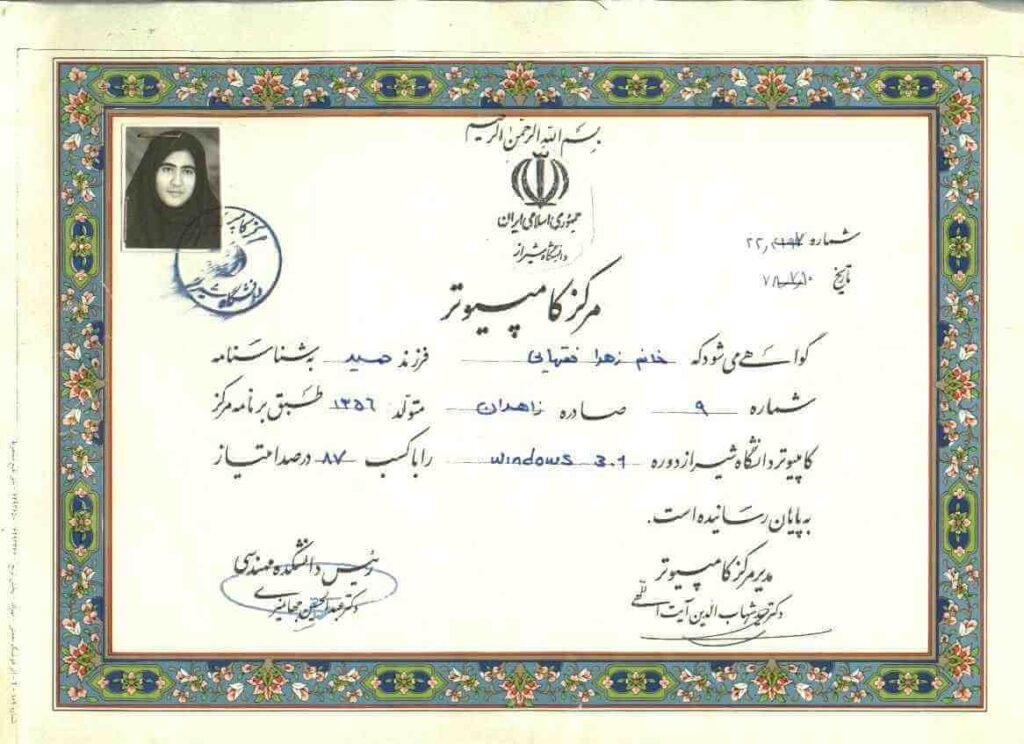 بسم الله الرحمن الرحیم
جمهوری اسلامی ایران
دانشگاه شیراز
شماره
تاریخ
مرکز کامپیوتر
مرکز کامپیوتر
دانشگاه شیراز
گواهی می شود که خانم زهرا فقیهی فرزند حمید به شناسنامه
شماره ۹ صادره زاهدان متولد ۱۳۵۶ طبق برنامه مرکز
کامپیوتر دانشگاه شیراز دوره windows 3.1 را با کسب ۸۷ درصد امتیاز
به پایان رسانیده است.
مدیر مرکز کامپیوتر
رئیس دانشکده مهندسی
دکتر شهاب الدین آیت اللهی
دکتر عبدالحسین جهانمیری